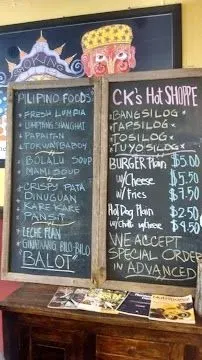 COOKING
PILIPINO FOODS
* FRESH LUMPIA
* LUMPIANG SHANGHAI
* PAPAITAN
* TOKWA'T BABOY
* BOLALU SOUP
* MAMI SOUP
* CRISPY PATA
* DINUGUAN
* KARE KARE
* PANSIT
* LECHE PLAN
* GINATAANG BILO-BILO
"BALOT"
CK's Hot SHOPPE
* BANGSILOG
* TAPSILOG
* TOSILOG
* TUYOSILOG
BURGER Plain $5.00
w/Cheese $5.50
w/Fries $7.50
Hot Dog Plain $2.50
w/Chilli w/Cheese $4.50
WE ACCEPT
SPECIAL ORDER
IN ADVANCED